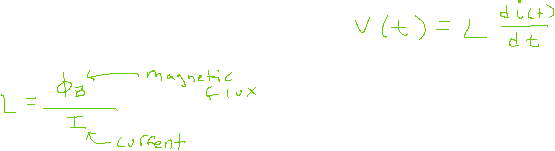 V(t) = L di(t)/dt
L = ΦB/I
magnetic
flux
current